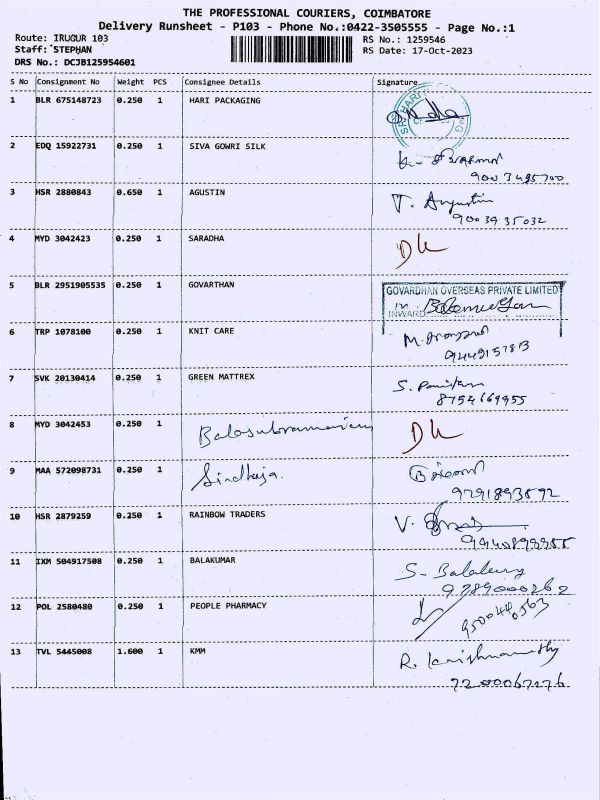 THE PROFESSIONAL COURIERS, COIMBATORE
Delivery Runsheet - P103 - Phone No.:0422-3505555 - Page No.:1
Route: IRUGUR 103
RS No.: 1259546
Staff: STEPHAN
RS Date: 17-Oct-2023
DRS No.: DCJB125954601
S No Consignment No Weight PCS Consignee Details Signature
1 BLR 675148723 0.250 1 HARI PACKAGING
2 EDQ 15922731 0.250 1 SIVA GOWRI SILK
9003495700
3 HSR 2880843 0.650 1 AGUSTIN T. Augustin
9003935032
4 MYD 3042423 0.250 1 SARADHA
5 BLR 2951905535 0.250 1 GOVARTHAN
GOVARDHAN OVERSEAS PRIVATE LIMITED
INWARD
6 TRP 1078100 0.250 1 KNIT CARE M.
7 SVK 20130414 0.250 1 GREEN MATTREX S.
8754669955
8 MYD 3042453 0.250 1 Balasubramaniem
9 MAA 572098731 0.250 1 Sindhuja.
10 HSR 2879259 0.250 1 RAINBOW TRADERS V.
11 IXM 504917508 0.250 1 BALAKUMAR S-
9789000262
12 POL 2580480 0.250 1 PEOPLE PHARMACY
9500440563
13 TVL 5445008 1.600 1 KMM R. krishnamurthy